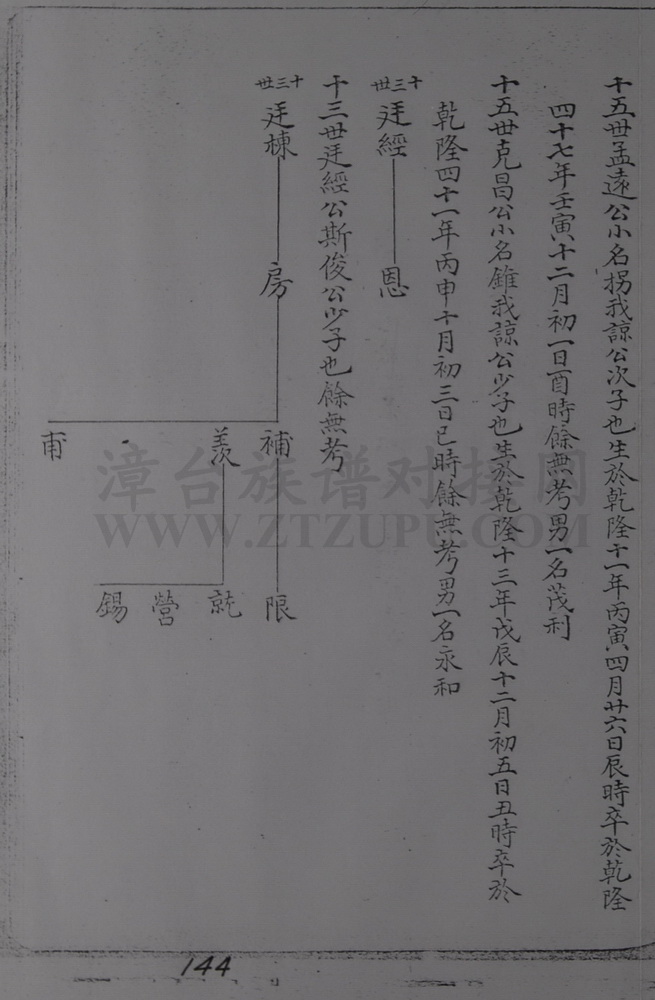 十五世孟遠公小名拐我諒公次子也生於乾隆十一年丙寅四月廿六日辰時卒於乾隆
四十七年壬寅十二月初一日酉時餘無考男一名茂利
十五世克昌公小名錐我諒公少子也生於乾隆十三年戊辰十二月初五日丑時卒於
乾隆四十一年丙申十月初三日巳時餘無考男一名永和
十三世
廷經
恩
十三世廷經公斯俊公少子也餘無考
十三世
廷棟
房
補
羨
甫
限
就
營
錫
漳台族谱对接网
WWW.ZTZUPU.COM
144